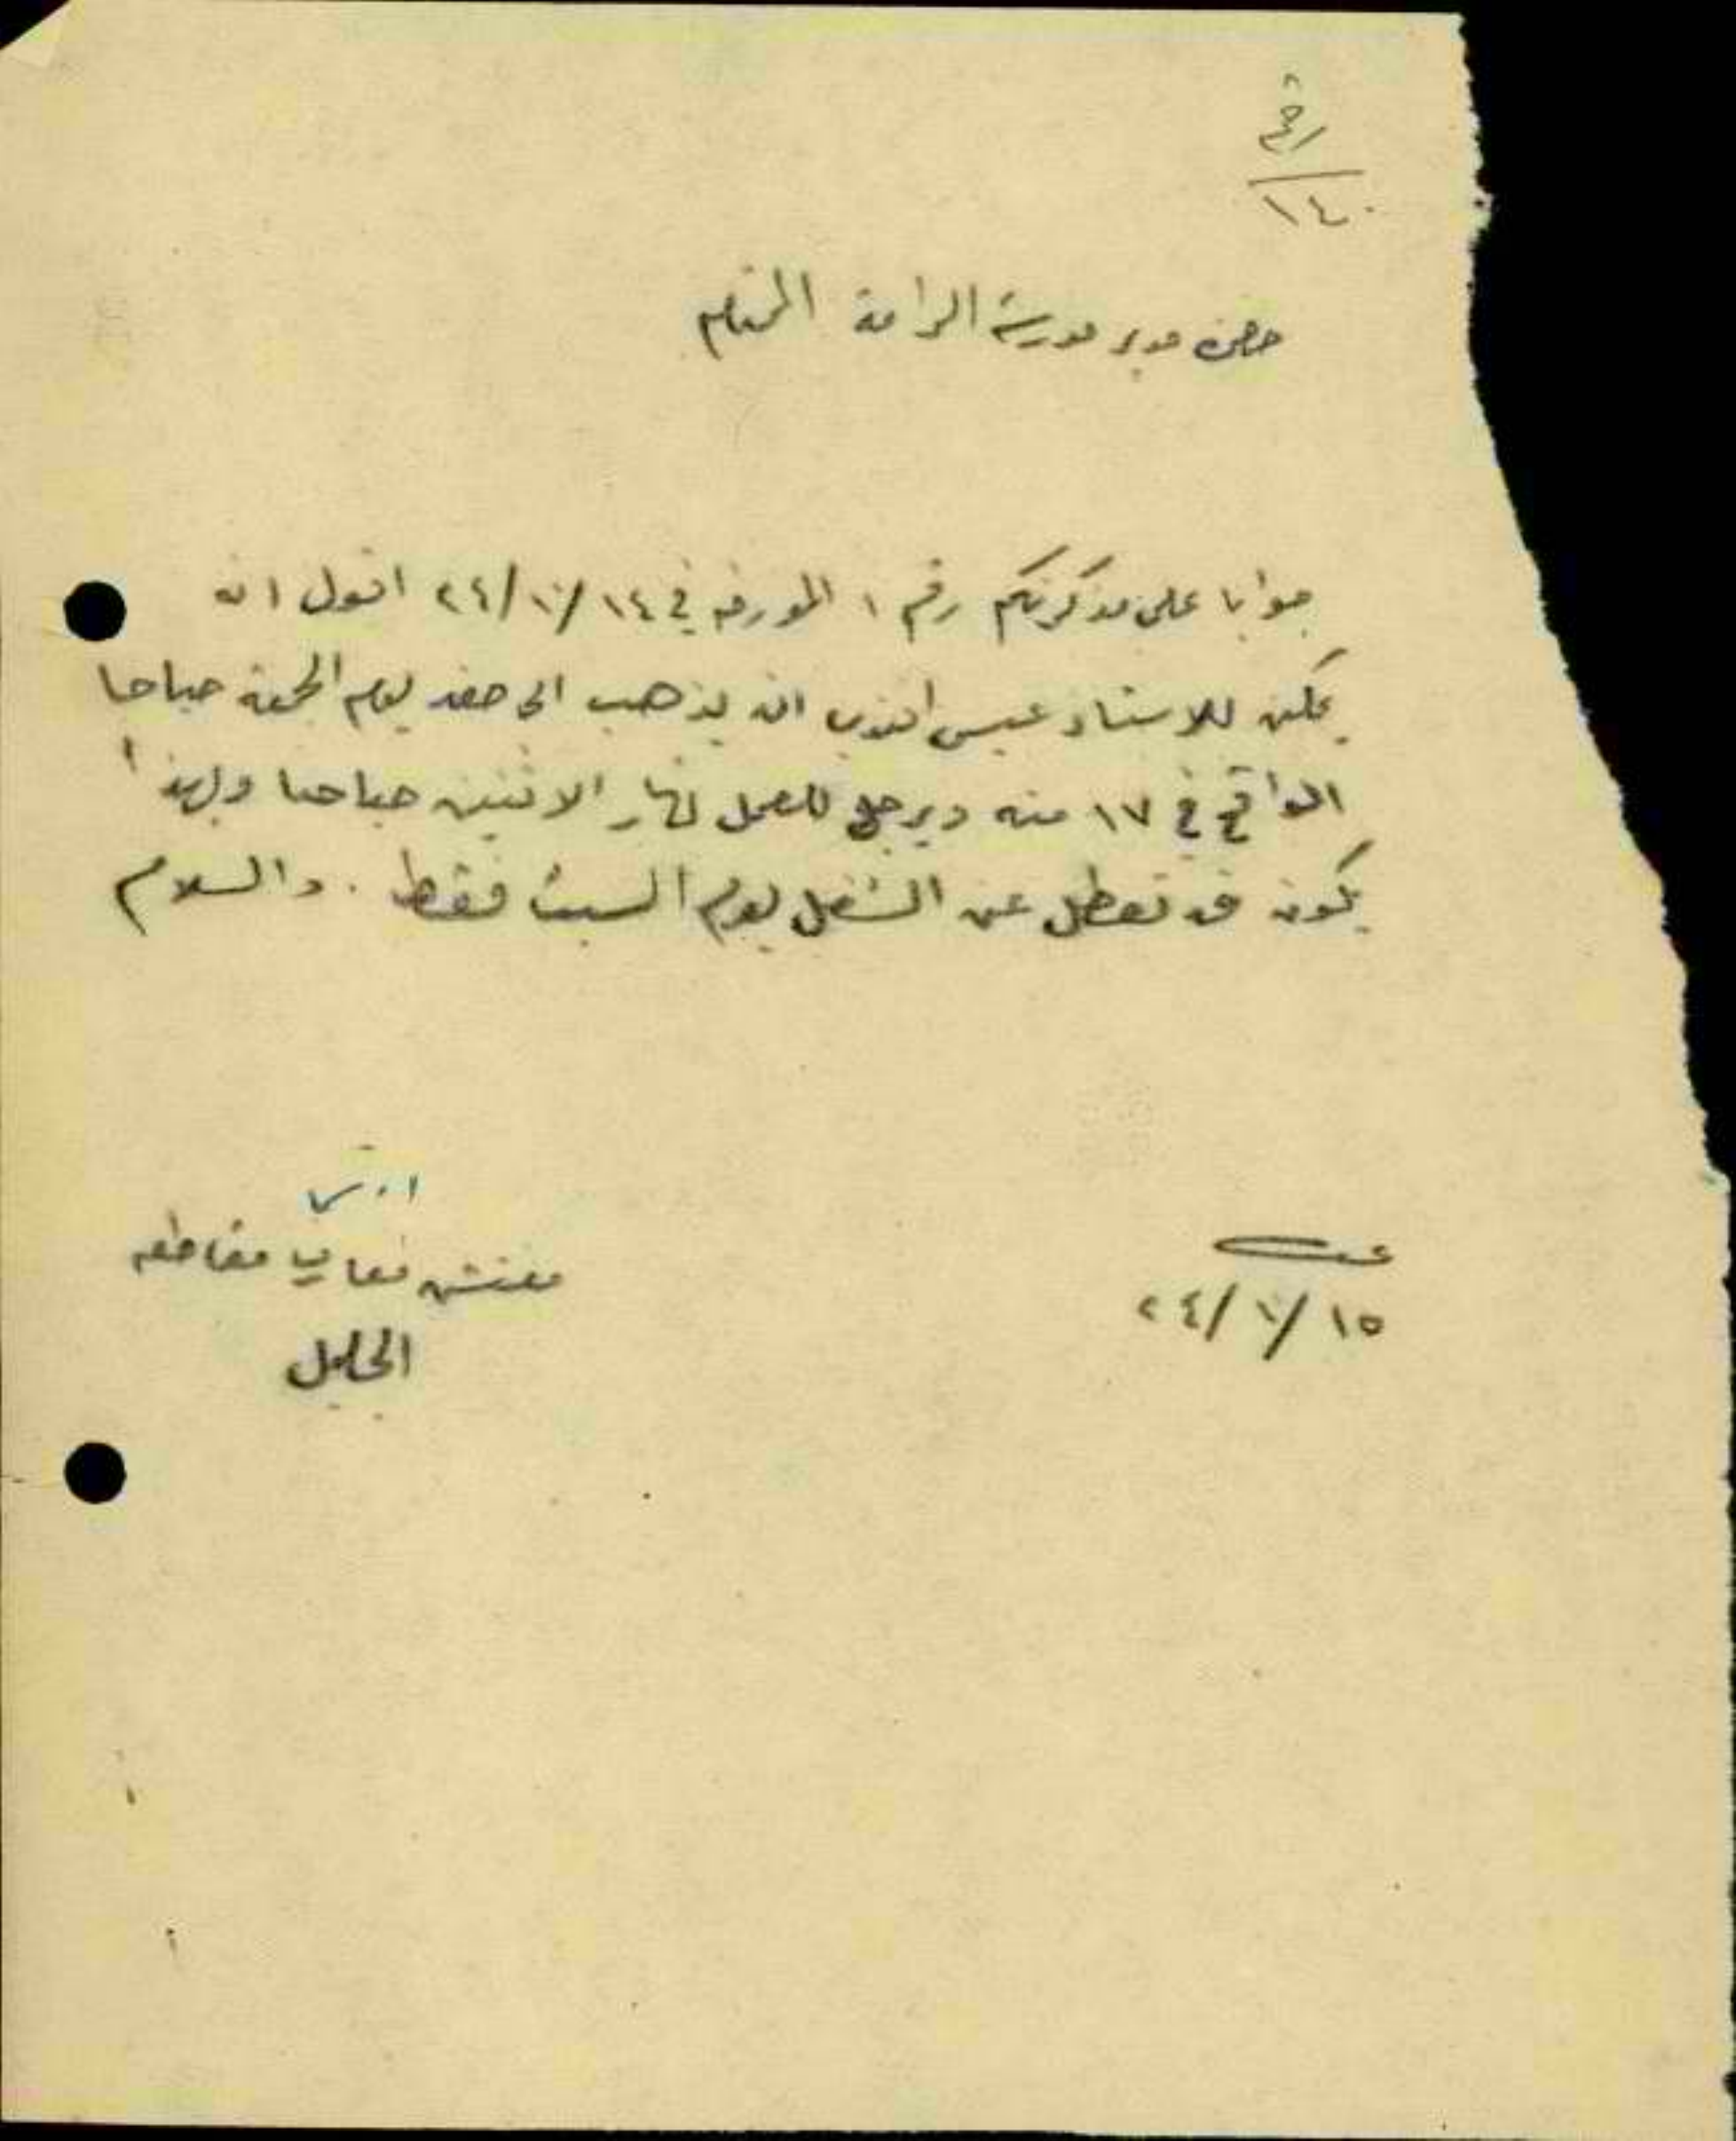 ١٤٠
حضرة مدير مدرسة الرامة المحترم
جوابا على مذكرتكم رقم ١ المورخه في ١٤/١٠/٢٤ اقول انه
يمكن للاستاذ عيسى افندي ان يذهب الى صفد يوم الجمعة صباحا
الواقع في ١٧ منه ويرجع للعمل نهار الاثنين صباحا وبهذا
يكون قد تعطل عن الشغل يوم السبت فقط . والسلام
مفتش معارف مقاطعه
الجليل
١٥/١٠/٢٤